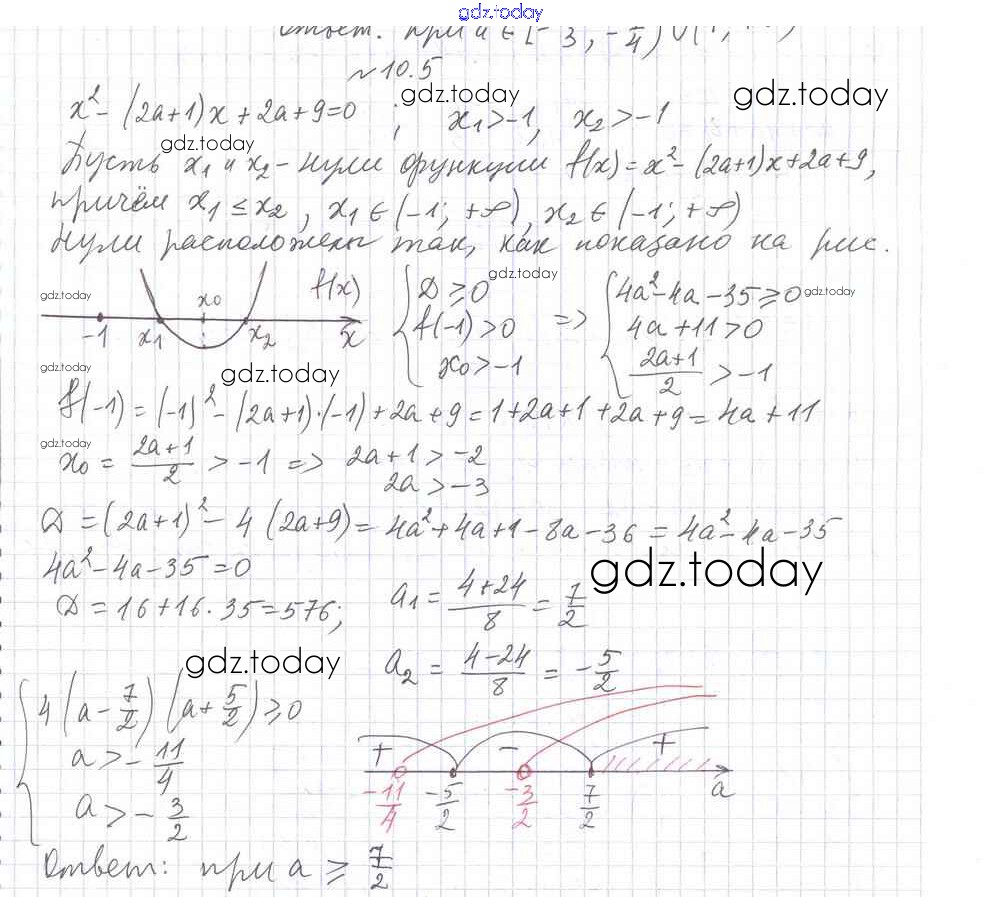 gdz.today
Ответ: при
№10.5
x² - (2a+1)x + 2a + 9 = 0 ; x₁ > -1, x₂ > -1
gdz.today
gdz.today
gdz.today
Пусть x₁ и x₂ - нули функции f(x) = x² - (2a+1)x + 2a + 9,
причём x₁ ≤ x₂, x₁ ∈ (-1; +∞), x₂ ∈ (-1; +∞)
Нули расположены так, как показано на рис.
gdz.today
gdz.today
gdz.today
-1 x₁ x₀ x₂ f(x) x
{ D ≥ 0 => { 4a² - 4a - 35 ≥ 0
f(-1) > 0 4a + 11 > 0
x₀ > -1 (2a+1)/2 > -1
gdz.today
gdz.today
f(-1) = (-1)² - (2a+1)·(-1) + 2a + 9 = 1 + 2a + 1 + 2a + 9 = 4a + 11
gdz.today
x₀ = (2a+1)/2 > -1 => 2a + 1 > -2
2a > -3
D = (2a+1)² - 4(2a+9) = 4a² + 4a + 1 - 8a - 36 = 4a² - 4a - 35
4a² - 4a - 35 = 0
gdz.today
D = 16 + 16·35 = 576; a₁ = (4+24)/8 = 7/2
gdz.today
a₂ = (4-24)/8 = -5/2
{ 4(a - 7/2)(a + 5/2) ≥ 0
a > -11/4
a > -3/2
+ - +
-11/4 -5/2 -3/2 7/2 a
Ответ: при a ≥ 7/2